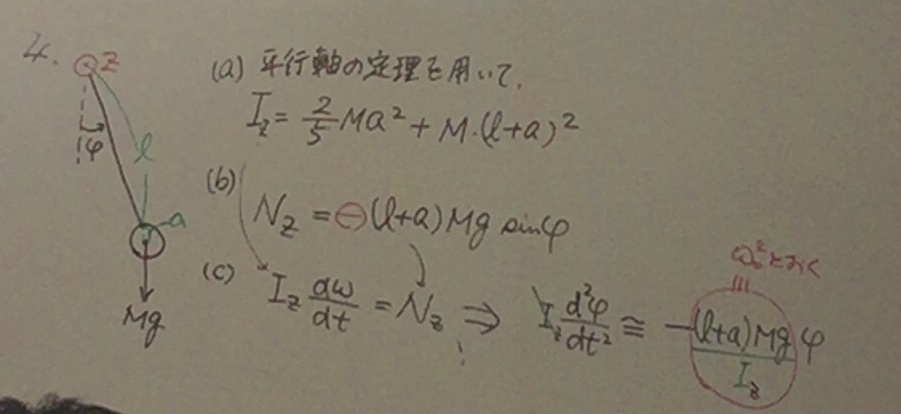 4.
z
φ
l
a
Mg
(a) 平行軸の定理を用いて,
I_z = 2/5 Ma² + M·(l+a)²
(b)
N_z = ⊖(l+a)Mg sinφ
(c) I_z dω/dt = N_z ⇒ I_z d²φ/dt² ≅ -(l+a)Mg/I_z φ
ω₀²とおく